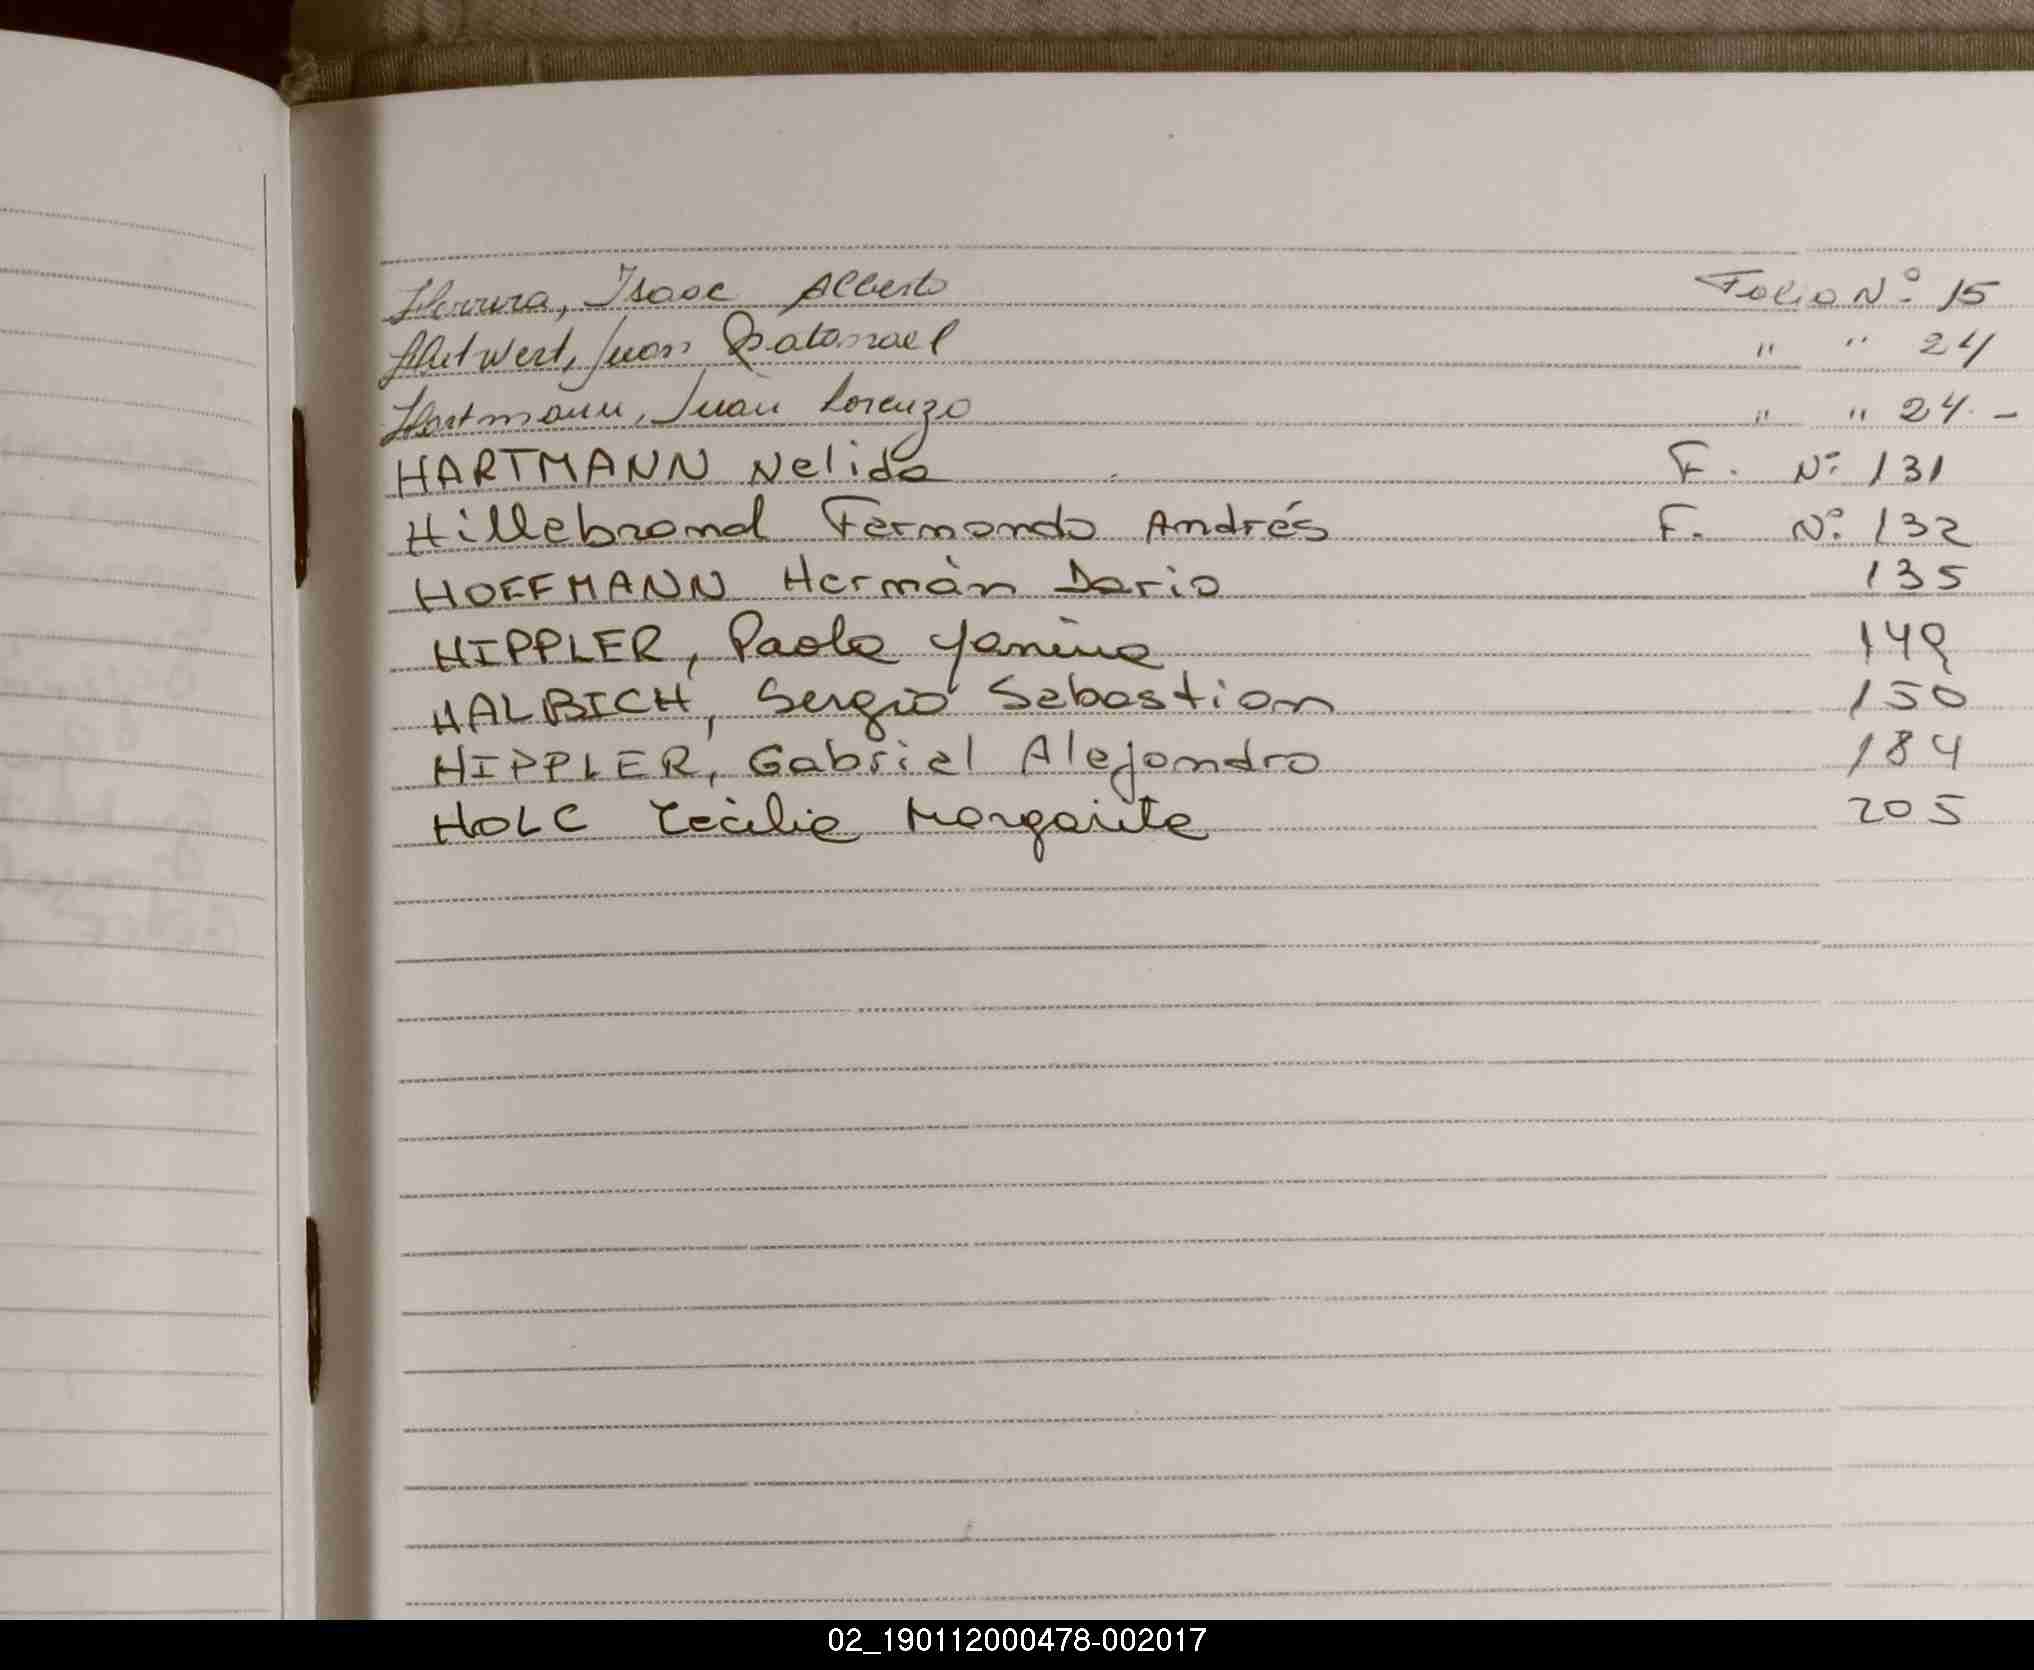 Herrera, Isaac Alberto Folio Nº 15
Juan " " 24
Hartmann, Juan Lorenzo " " 24 -
HARTMANN Nelida F. Nº 131
Hillebrand Fernando Andrés F. Nº 132
HOFFMANN Hernán Dario 135
HIPPLER, Paola Yanina 149
HALBICH, Sergio Sebastian 150
HIPPLER, Gabriel Alejandro 184
HOLC Cecilia Margarita 205
02_190112000478-002017